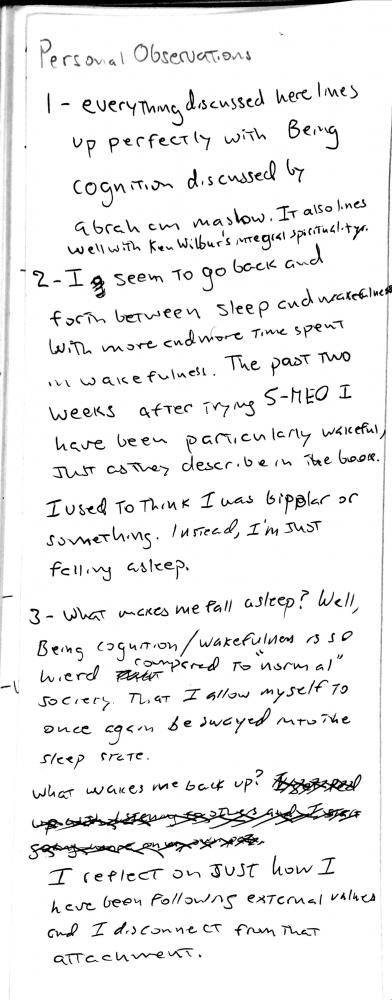 Personal Observations
1 - everything discussed here lines
up perfectly with Being
cognition discussed by
abraham maslow. It also lines
well with Ken Wilbur's integral spirituality.
2 - I seem to go back and
forth between sleep and wakefulness
with more and more time spent
in wakefulness. The past two
weeks after trying 5-MEO I
have been particularly wakeful,
just as they describe in the book.
I used to think I was bipolar or
something. Instead, I'm just
falling asleep.
3 - What makes me fall asleep? Well,
Being cognition/wakefulness is so
wierd compared to "normal"
society. That I allow myself to
once again be swayed into the
sleep state.
What wakes me back up?
I reflect on just how I
have been following external values
and I disconnect from that
attachment.